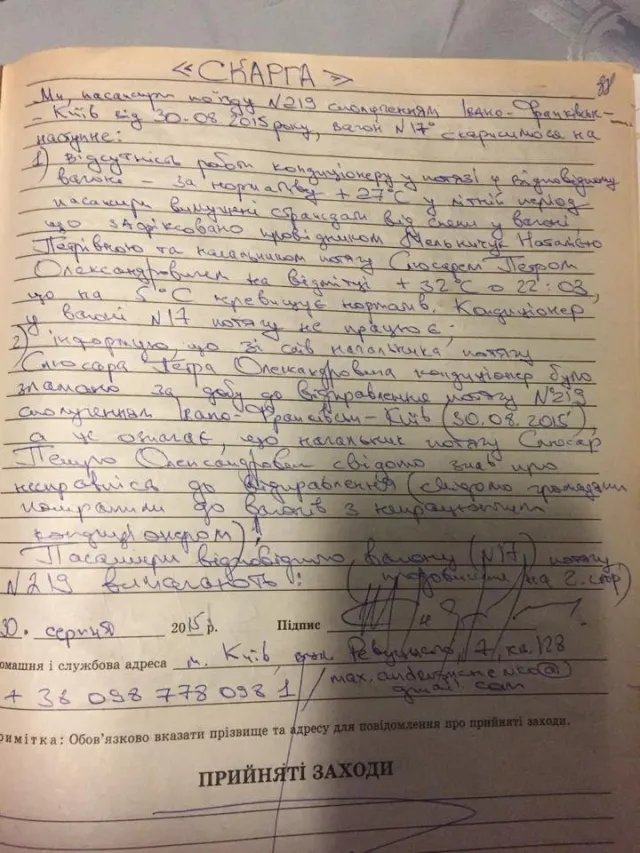 «СКАРГА»
Ми, пасажири поїзду N219 сполученням Івано-Франківськ-
- Київ від 30.08.2015 року, вагон N17 скаржимося на
наступне:
1) Відсутність роботи кондиціонеру у потязі у відповідному
вагоні – за нормативу +27°С у літній період
пасажири вимушені страждати від спеки у вагоні,
що зафіксовано провідником Мельничук Наталією
Петрівною та начальником потягу Слюсарем Петром
Олександровичем на відмітці +32°С о 22:03,
що на 5°С перевищує норматив. Кондиціонер
у вагоні N17 потягу не працює;
2) інформую, що зі слів начальника потягу
Слюсара Петра Олександровича кондиціонер було
зламано за добу до відправлення потягу №219
сполученням Івано-Франківськ-Київ (30.08.2015),
а це означає, що начальник потягу Слюсар
Петро Олександрович свідомо знав про
несправність до відправлення (свідомо громадян
до вагонів з непрацюючим
кондиціонером)!
Пасажири відповідного вагону (N17) потягу
N219 вимагають: (продовження на 2. стор)
30. серпня 2015 р. Підпис
омашня і службова адреса м. Київ, вул. Ревуцького, 7, кв. 128
+38 098 778 098 1
gmail.com
римітка: Обов'язково вказати прізвище та адресу для повідомлення про прийняті заходи.
ПРИЙНЯТІ ЗАХОДИ